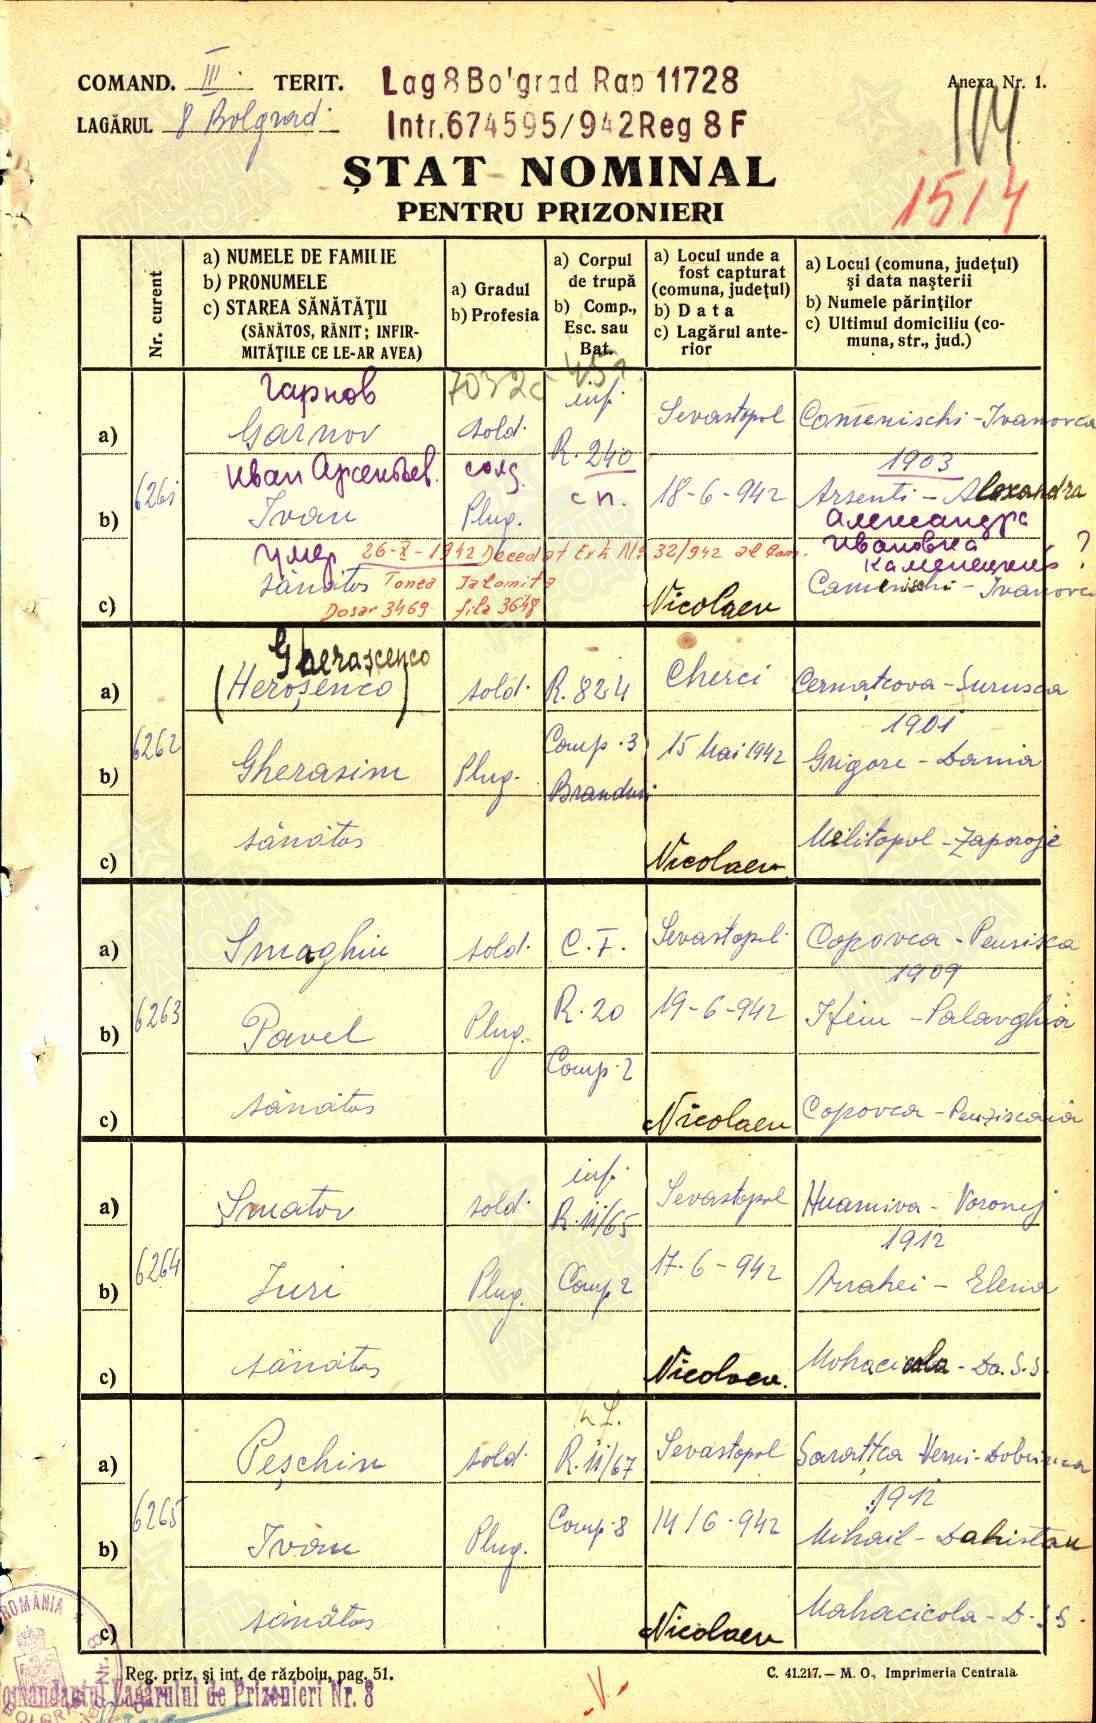 COMAND. III. TERIT. Lag 8 Bo'grad Rap 11728 Anexa Nr. 1.
LAGĂRUL 8 Bolgrad Intr. 674595/942 Reg 8 F
1514
ȘTAT NOMINAL
PENTRU PRIZONIERI
Nr. curent
a) NUMELE DE FAMILIE
b) PRONUMELE
c) STAREA SĂNĂTĂȚII
(SĂNĂTOS, RĂNIT; INFIR-
MITĂȚILE CE LE-AR AVEA)
a) Gradul
b) Profesia
a) Corpul
de trupă
b) Comp.,
Esc. sau
Bat.
a) Locul unde a
fost capturat
(comuna, județul)
b) Data
c) Lagărul ante-
rior
a) Locul (comuna, județul)
și data nașterii
b) Numele părinților
c) Ultimul domiciliu (co-
muna, str., jud.)
Гарнов
a) Garnov sold. inf. Sevastopol Camenischi - Ivanovca
R. 240 1903
6261
Иван Арсентьев. солд. сп.
b) Ivan Plug. 18-6-942 Arsenti - Alexandra
Александра
Ивановка
Каменецкий ?
умер 26-X-1942 Decedat Ext. No 32/942 al Com.
Tonea Ialomita
Dosar 3469 fila 3648
c) sănătos Nicolaev Camenischi - Ivanovca
Gherascenco
a) (Heroșenco) sold. R. 824 Cherci Cernatcova - Surusca
1901
6262
b) Gherasim Plug. Comp. 3 15 Mai 1942 Grigore - Dania
c) sănătos Nicolaev Melitopol - Zaporoje
a) Smaghin sold. C. F. Sevastopol Copovca - Pensisca
1909
6263
b) Pavel Plug. R. 20 19-6-942
Comp. 2
c) sănătos Nicolaev Copovca -
a) Smatov sold. inf. Sevastopol Huamiva - Voronej
R. II/65 1912
6264
b) Iuri Plug. Comp 2 17-6-942 - Elena
c) sănătos Nicolaev - Da. S.S.
a) Peșchin sold. R. II/67 Sevastopol
1912
6265
b) Ivan Plug. Comp. 8 14/6-942 Mihail -
c) sănătos Nicolaev Mahacicola - D. S.S.
Reg. priz. și int. de război, pag. 51.
C. 41.217.— M. O., Imprimeria Centrală
ROMÂNIA
Comandantul Lagărului de Prizonieri Nr. 8
-V-